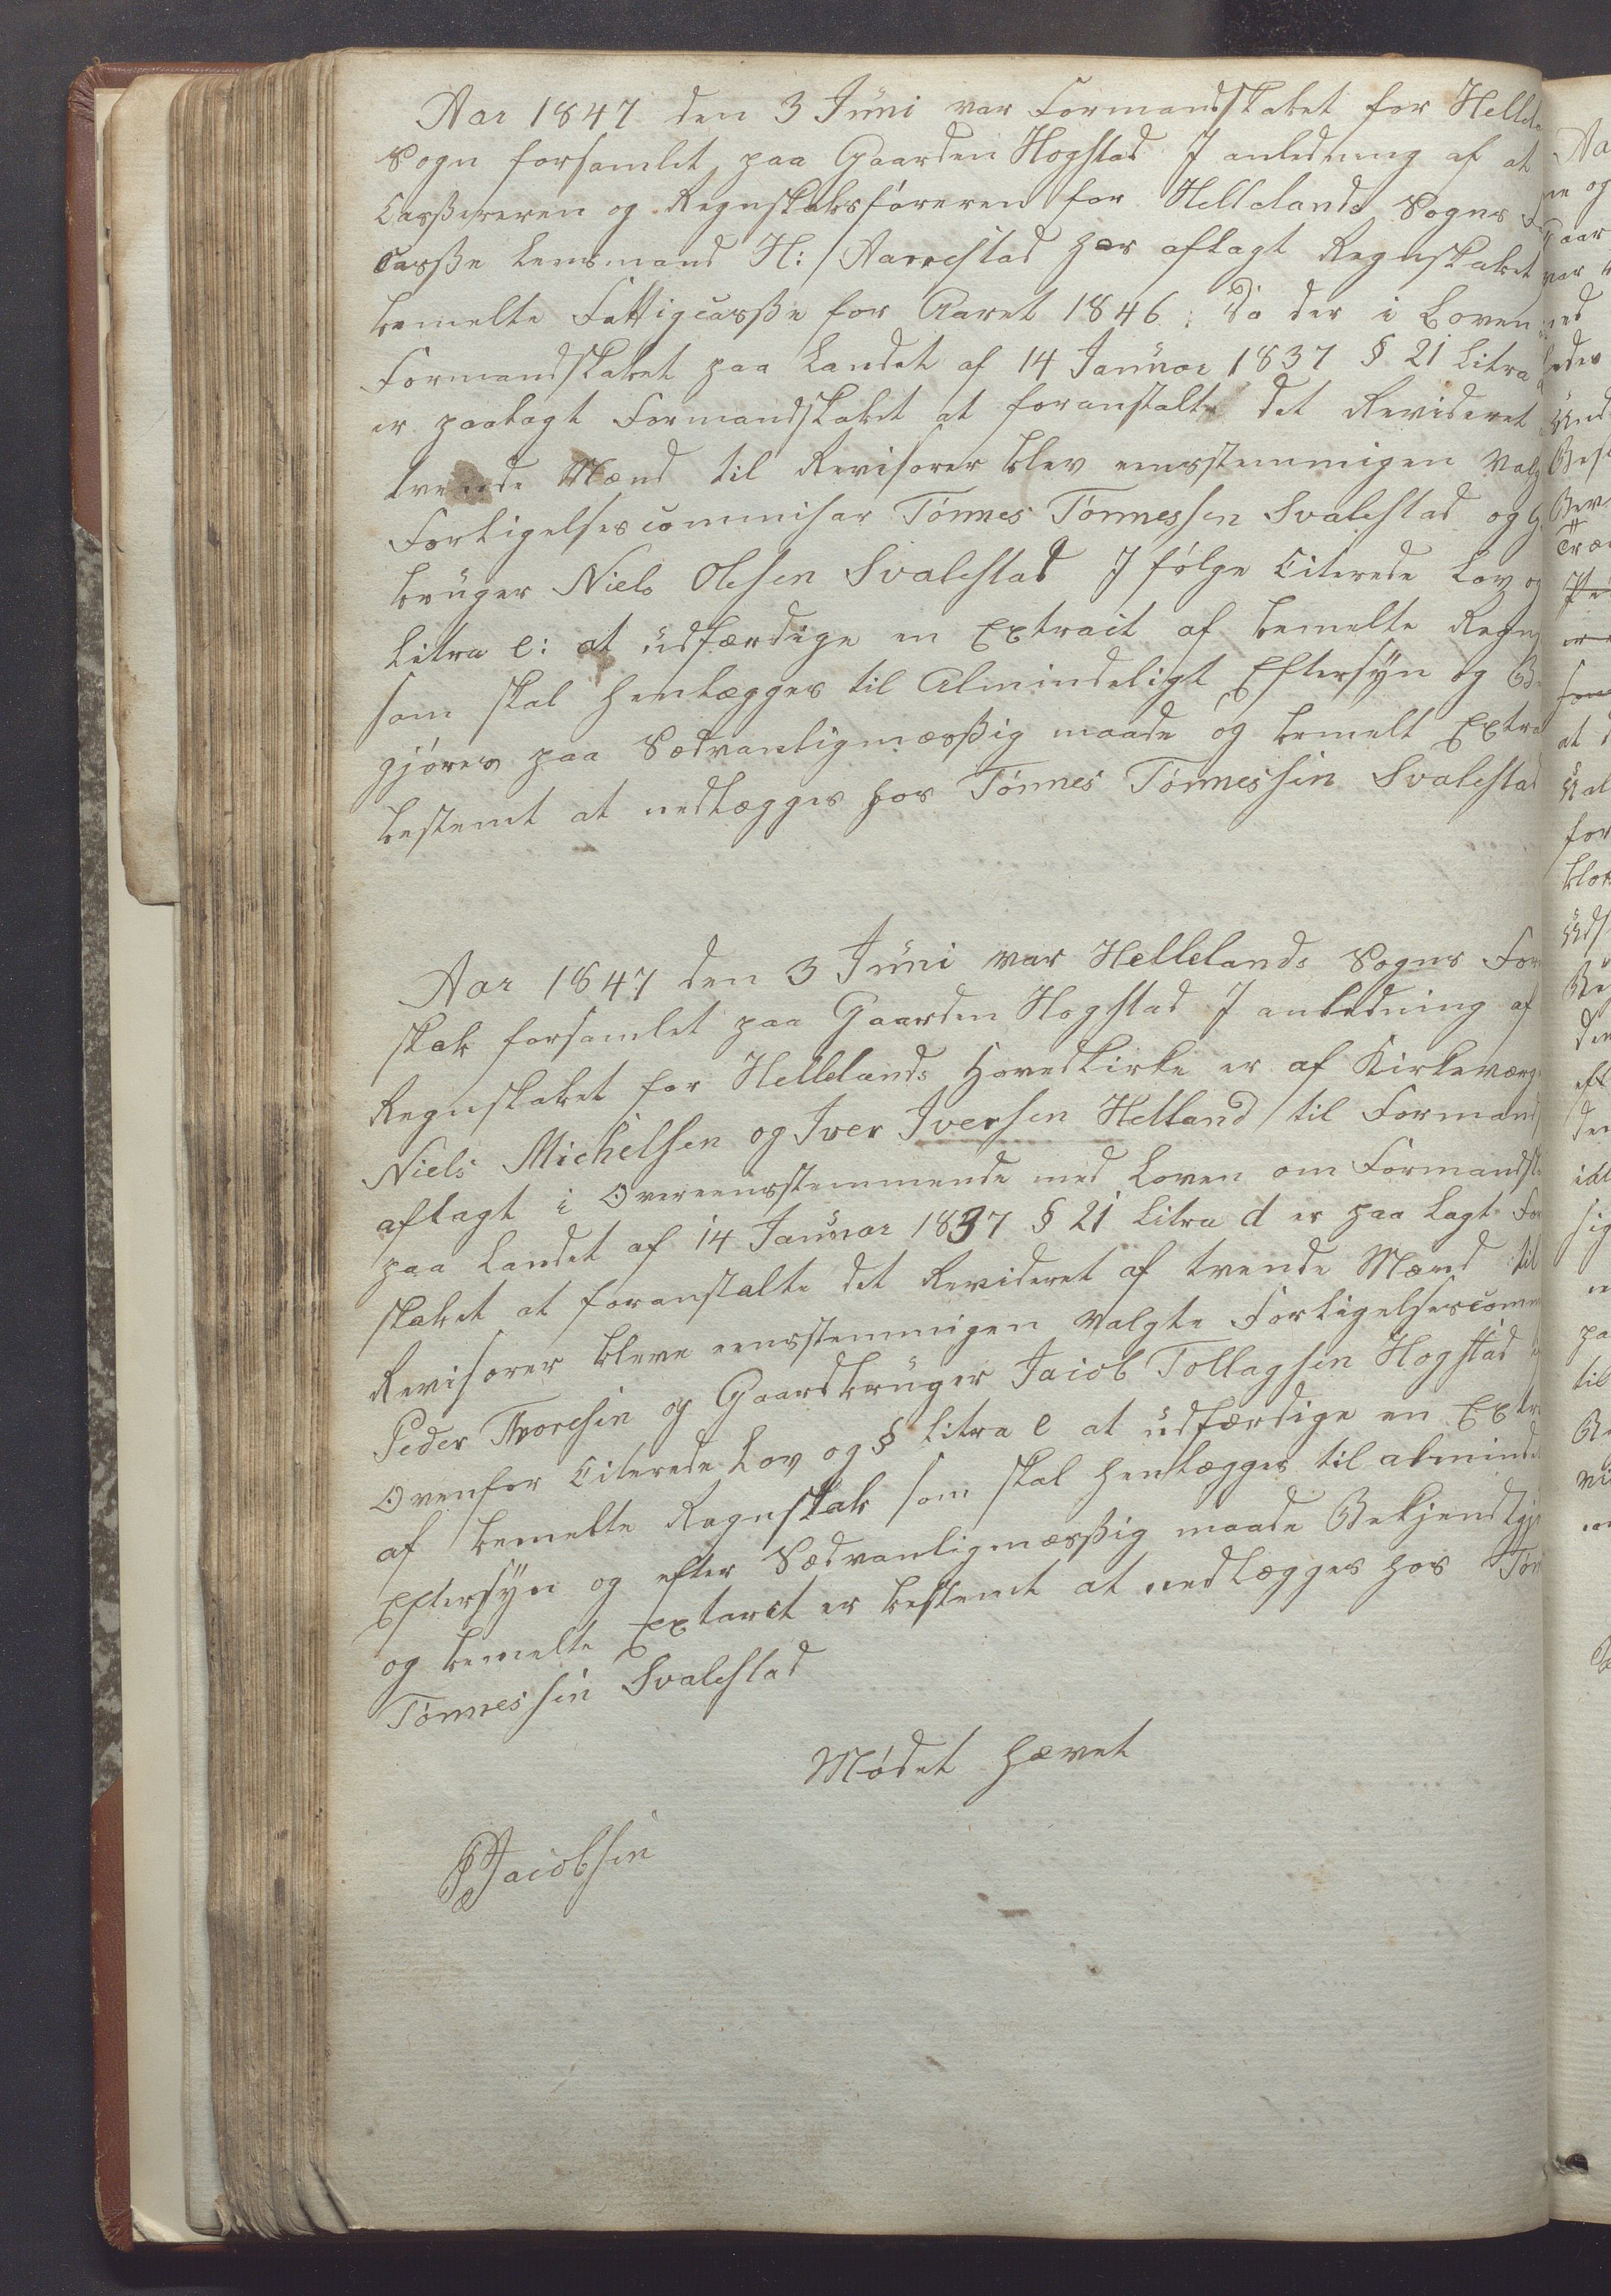 Aar 1847 den 3 Juni var Formandskabet for Hellela
Sogn forsamlet paa Gaarden Hogstad I anledning af at
Casßereren og Regnskabsføreren for Hellelands Sogns F
Casße Lensmand H: Aarrestad har aflagt Regnskabet
bemelte Fattigcasße for Aaret 1846: Da der i Loven
Formandskabet paa Landet af 14 Januar 1837 § 21 Litra
er paalagt Formandskabet at foranstalte det Revideret
tvende Mænd til Revisorer blev eensstemmigen Valg
Forligelsescommisar Tönnes Tönnessen Svalestad og G
bruger Niels Olesen Svalestad I følge Citerede Lov og
Litra e: at udfærdige en Extrait af bemelte Regn
som skal henlægges til Almindeligt Eftersyn og B
gjøres paa Sædvanligmæsßig maade og bemelt Extra
bestemt at nedlægges hos Tönnes Tönnessen Svalestad
Aar 1847 den 3 Juni var Hellelands Sogns For
skab forsamlet paa Gaarden Hogstad I anledning af
Regnskabet for Hellelands Hovedkirke er af Kirkeværg
Niels Michelsen og Iver Iversen Helland til Formand
aflagt i Overeensstemmende med Loven om Formandsk
paa Landet af 14 Januar 1837 § 21 Litra d er paa Lagt For
skabet at foranstalte det Revideret af tvende Mænd til
Revisorer bleve eensstemmigen Valgte Forligelsescomm
Peder Thoresen og Gaardbruger Jacob Tollagsen Hogstad
Ovenfor Citerede Lov og § Litra e at udfærdige en Extr
af bemelte Regnskab som skal henlægges til alminde
Eftersyn og efter Sædvanligmæsßig maade Bekjendtgj
og bemelte Extarct er bestemt at nedlægges hos Tön
Tönnessen Svalestad
Mødet hævet
PJacobsen